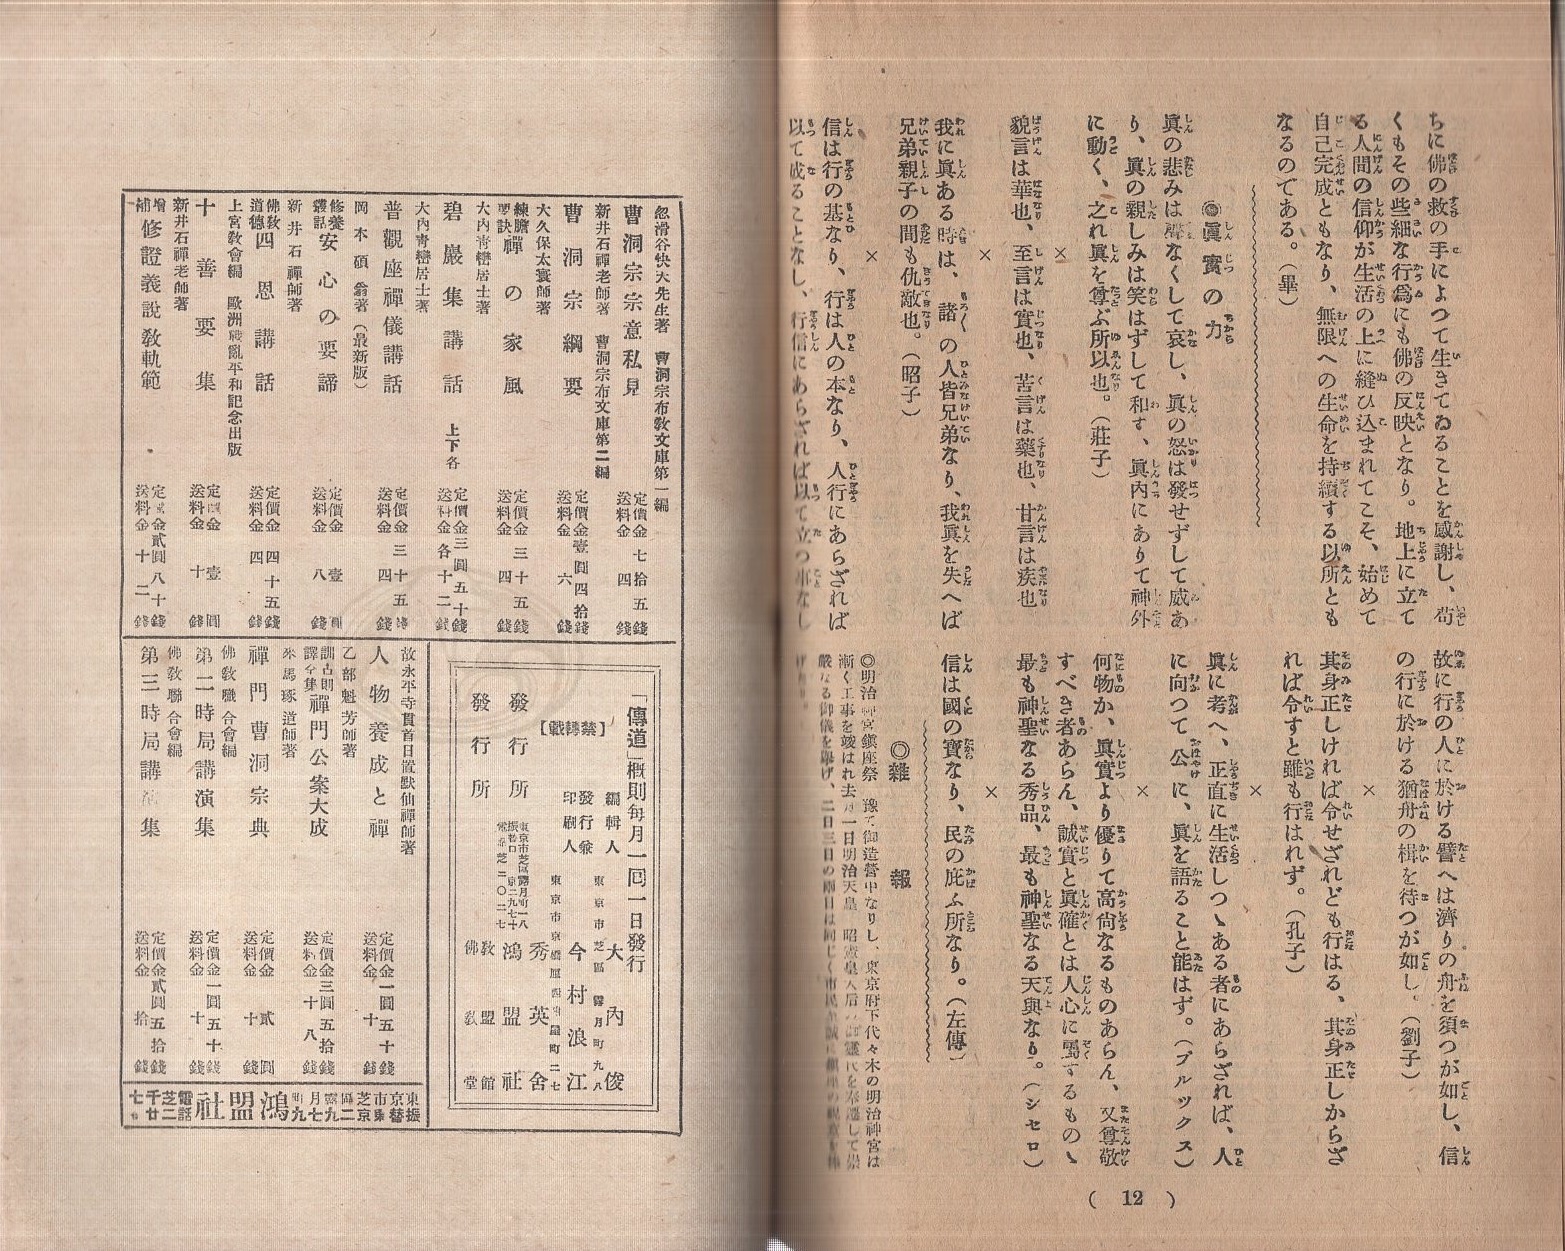 ちに佛の救の手によつて生きてゐることを感謝し、苟
くもその些細な行爲にも佛の反映となり。地上に立て
る人間の信仰が生活の上に縫ひ込まれてこそ、始めて
自己完成ともなり、無限への生命を持續する以所とも
なるのである。（畢）
◎眞實の力
眞の悲みは聲なくして哀し、眞の怒は發せずして威あ
り、眞の親しみは笑はずして和す、眞内にありて神外
に動く、之れ眞を尊ぶ所以也。（莊子）
×
貌言は華也、至言は實也、苦言は藥也、甘言は疾也
×
我に眞ある時は、諸の人皆兄弟なり、我眞を失へば
兄弟親子の間も仇敵也。（昭子）
×
信は行の基なり、行は人の本なり、人行にあらざれば
以て成ることなし、行信にあらざれば以て立つ事なし
故に行の人に於ける譬へは濟りの舟を須つが如し、信
の行に於ける猶舟の楫を待つが如し。（劉子）
×
其身正しければ令せざれども行はる、其身正しからざ
れば令すと雖も行はれず。（孔子）
×
眞に考へ、正直に生活しつゝある者にあらざれば、人
に向つて公に、眞を語ること能はず。（ブルックス）
×
何物か、眞實より優りて高尙なるものあらん、又尊敬
すべき者あらん、誠實と眞確とは人心に屬するものゝ
最も神聖なる秀品、最も神聖なる天與なり。（シセロ）
×
信は國の寶なり、民の庇ふ所なり。（左傳）
◎雜報
◎明治神宮鎭座祭 豫て御造營中なりし、東京府下代々木の明治神宮は
漸く工事を竣はれ去月一日明治天皇
( 12 )
忽滑谷快天先生著 曹洞宗布教文庫第一編
曹洞宗宗意私見 定價金七拾五錢 送料金四錢
新井石禪老師著 曹洞宗布文庫第二編
曹洞宗綱要 定價金壹圓四拾錢 送料金六錢
大久保太寰師著
練膽要訣 禪の家風 定價金三十五錢 送料金四錢
大内靑巒居士著
碧巖集講話 上下各 定價金三圓五十錢 送料金各十二錢
大内靑巒居士著
普觀座禪儀講話 定價金三十五錢 送料金四錢
岡本碩翁著（最新版）
修養叢話 安心の要諦 定價金壹圓 送料金八錢
新井石禪師著
佛敎道德 四恩講話 定價金四十五錢 送料金四錢
上宮敎會編 歐洲戰亂平和記念出版
十善要集 定價金壹圓 送料金十錢
新井石禪老師著
增補 修證義說敎軌範 定價金貳圓八十錢 送料金十二錢
「傳道」概則每月一回一日發行
【禁轉載】
編輯人 東京市芝區露月町九八 大内俊
發行兼印刷人 今村浪江
東京市京橋區四
秀英舍
發行所 鴻盟社
發行所 佛敎館
故永平寺貫首日置默仙禪師著
人物養成と禪 定價金一圓五十錢 送料金十錢
乙部魁芳師著
訓古則譯全集 禪門公案大成 定價金三圓五拾錢 送料金十八錢
來馬琢道師著
禪門曹洞宗典 定價金貳圓 送料金十錢
佛敎聯合會編
第二時局講演集 定價金一圓五十錢 送料金十錢
佛敎聯合會編
第三時局講演集 定價金貳圓五拾錢 送料金拾錢
鴻盟社